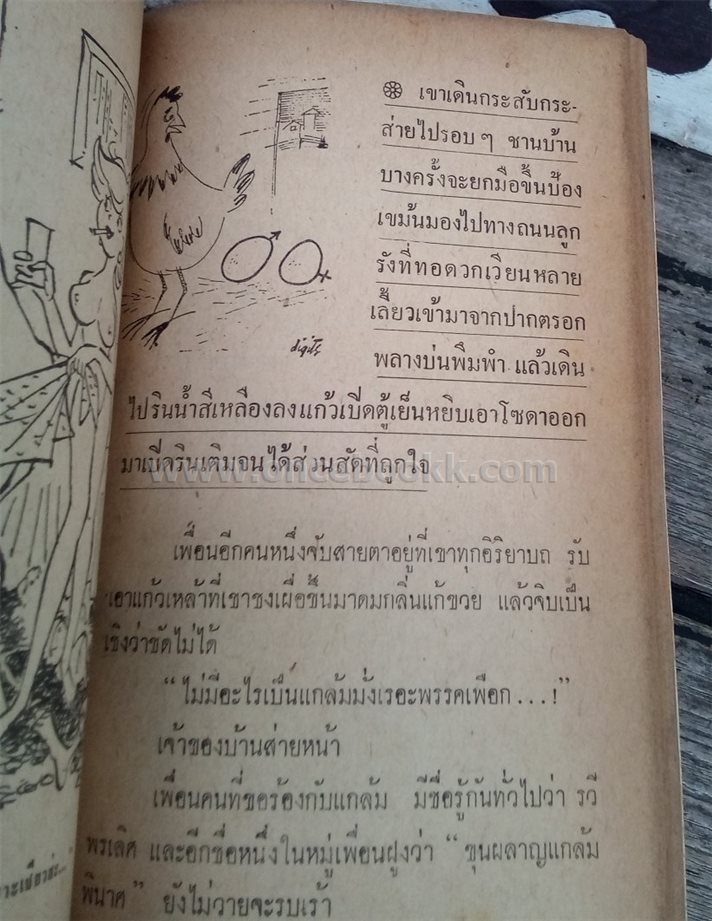 ❀ เขาเดินกระสับกระ-
ส่ายไปรอบ ๆ ชานบ้าน
บางครั้งจะยกมือขึ้นป้อง
เขม้นมองไปทางถนนลูก
รังที่ทอดวกเวียนหลาย
เลี้ยวเข้ามาจากปากตรอก
พลางบ่นพึมพำ แล้วเดิน
ไปรินน้ำสีเหลืองลงแก้วเปิดตู้เย็นหยิบเอาโซดาออก
มาเปิดรินเติมจนได้ส่วนสัดที่ถูกใจ
เพื่อนอีกคนหนึ่งจับสายตาอยู่ที่เขาทุกอิริยาบถ รับ
เอาแก้วเหล้าที่เขาชงเผื่อขึ้นมาดมกลิ่นแก้ขวย แล้วจิบเป็น
เชิงว่าขัดไม่ได้
“ไม่มีอะไรเป็นแกล้มมั่งเรอะพรรคเพือก ...!”
เจ้าของบ้านส่ายหน้า
เพื่อนคนที่ขอร้องกับแกล้ม มีชื่อรู้กันทั่วไปว่า รวี
พรเลิศ และอีกชื่อหนึ่งในหมู่เพื่อนฝูงว่า “ขุนผลาญแกล้ม
พินาศ” ยังไม่วายจะรบเร้า